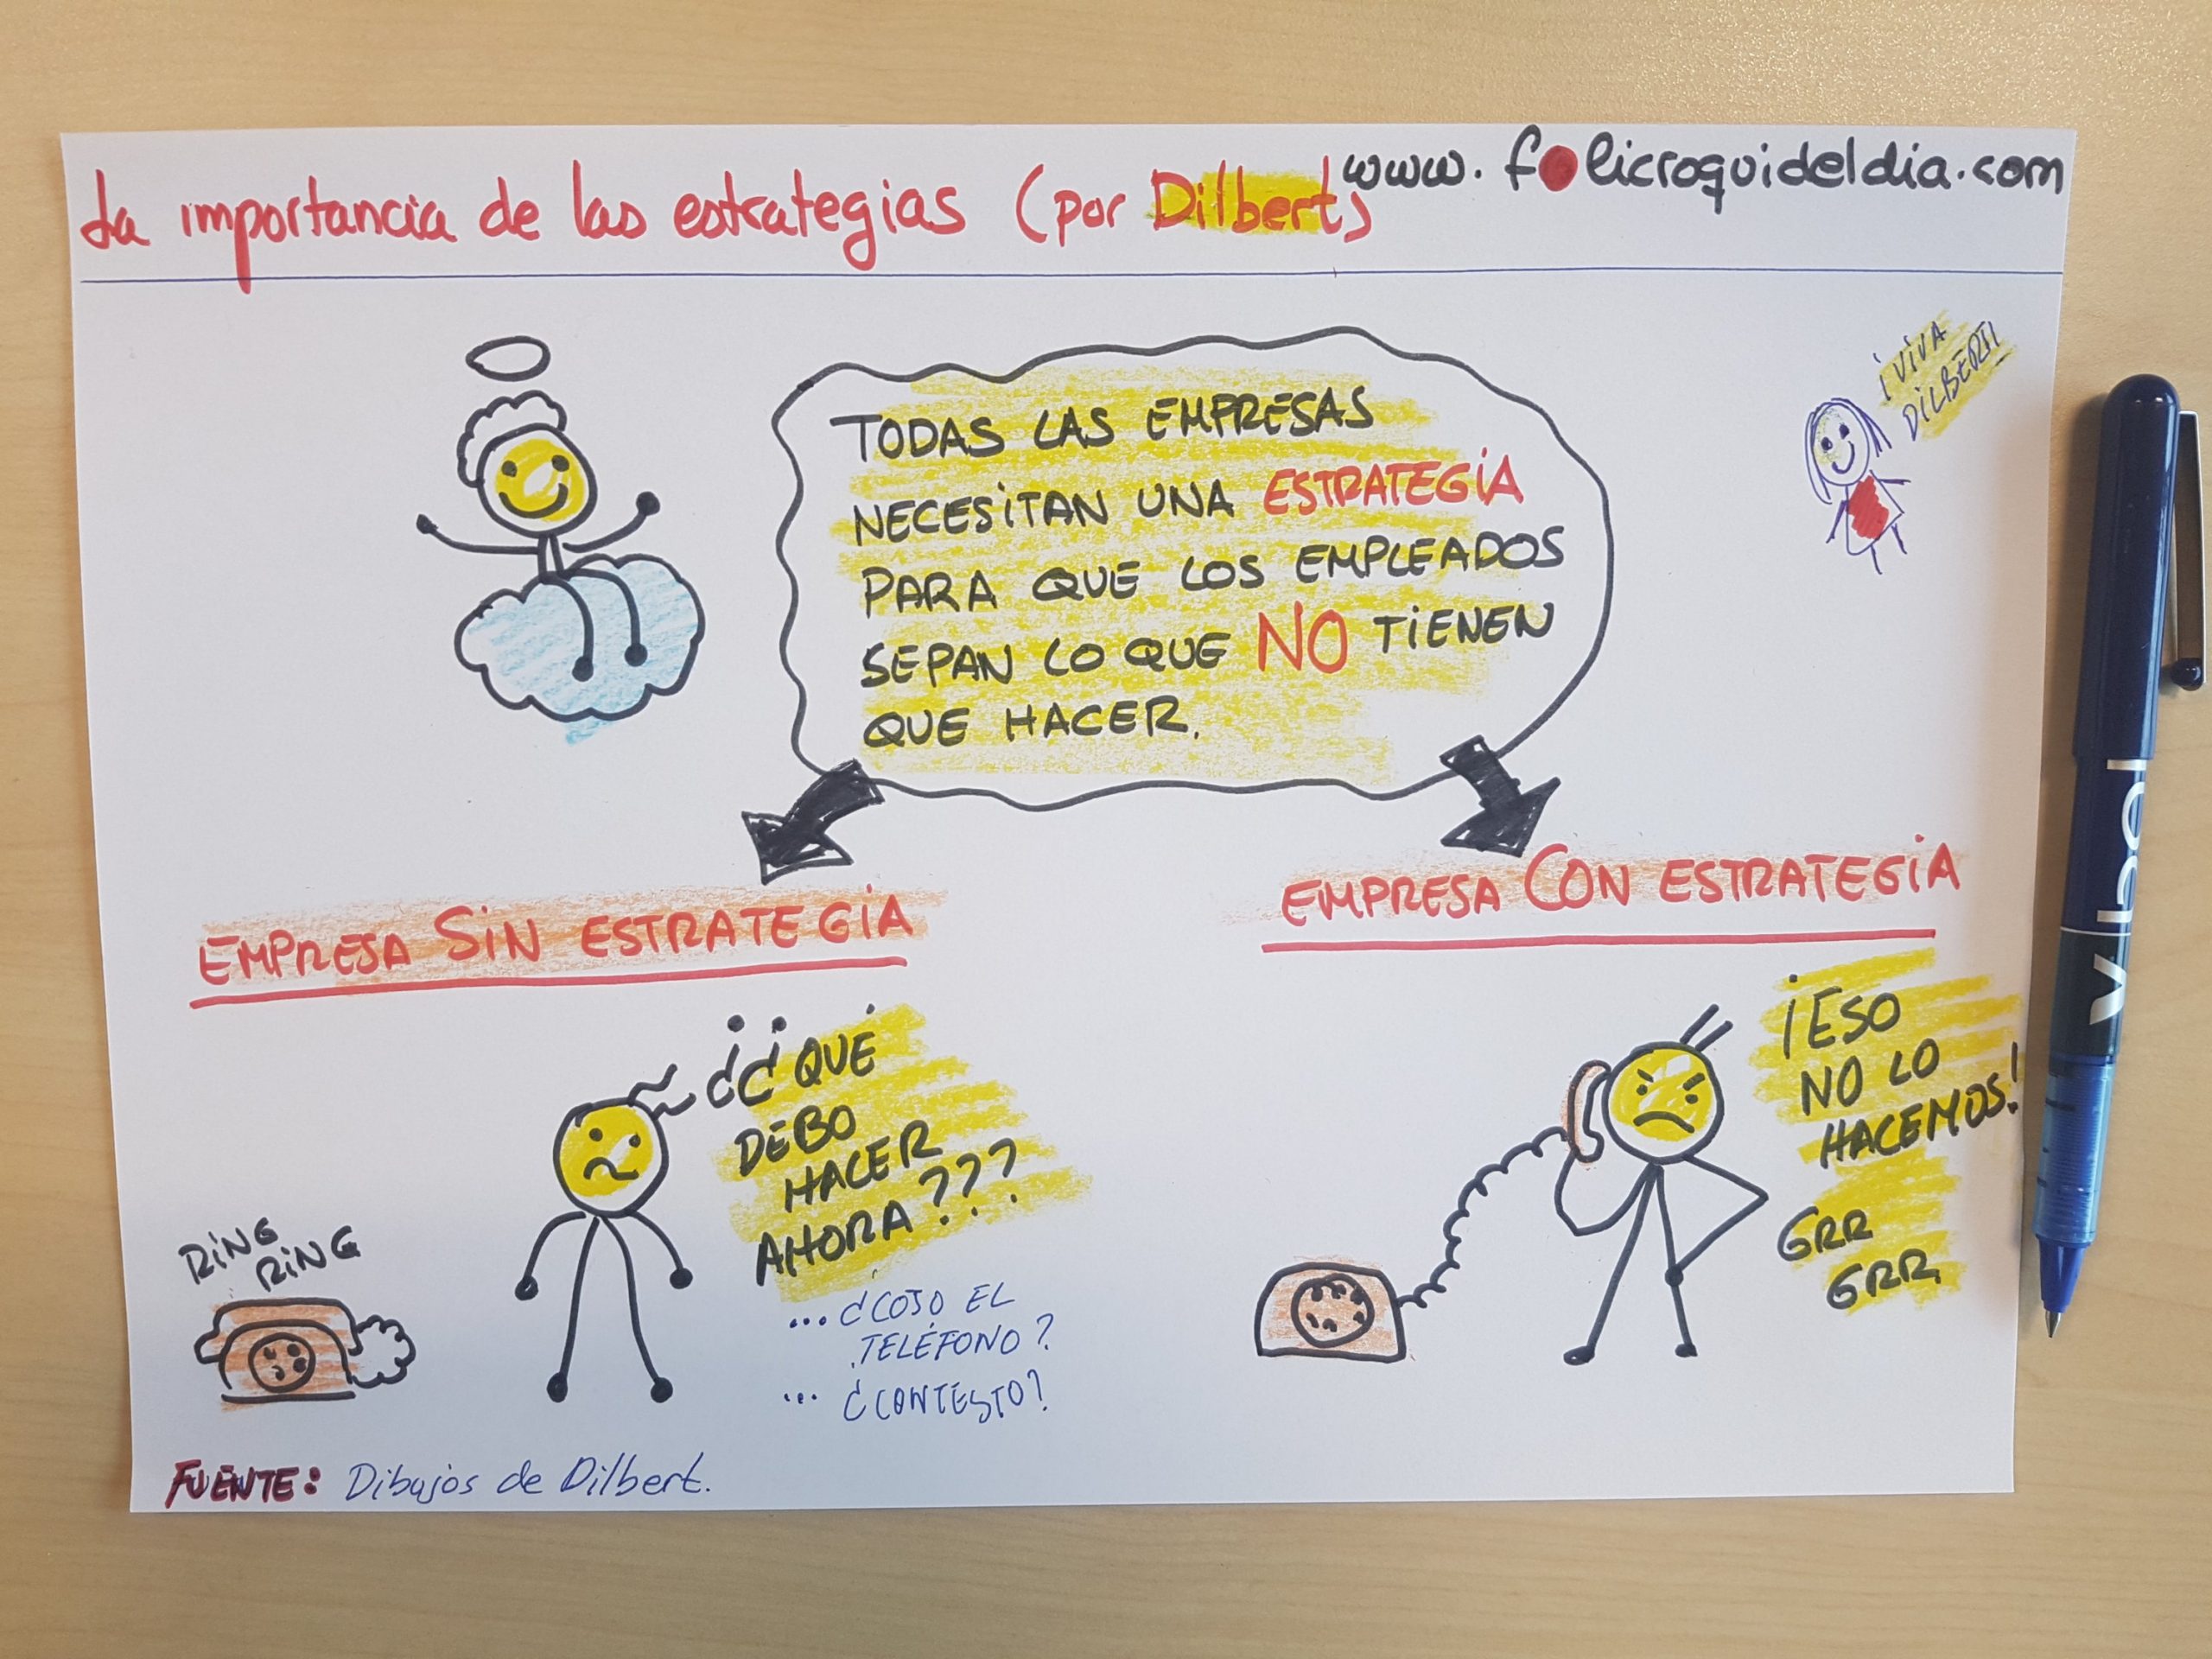 La importancia de las estrategias (por Dilbert)
www.folicroquideldia.com
¡VIVA
DILBERT!
TODAS LAS EMPRESAS
NECESITAN UNA ESTRATEGIA
PARA QUE LOS EMPLEADOS
SEPAN LO QUE NO TIENEN
QUE HACER.
EMPRESA SIN ESTRATEGIA
¿¿QUÉ
DEBO
HACER
AHORA???
RING
RING
...¿COJO EL
TELÉFONO?
... ¿CONTESTO?
EMPRESA CON ESTRATEGIA
¡ESO
NO LO
HACEMOS!
GRR
GRR
FUENTE: Dibujos de Dilbert.
Vball